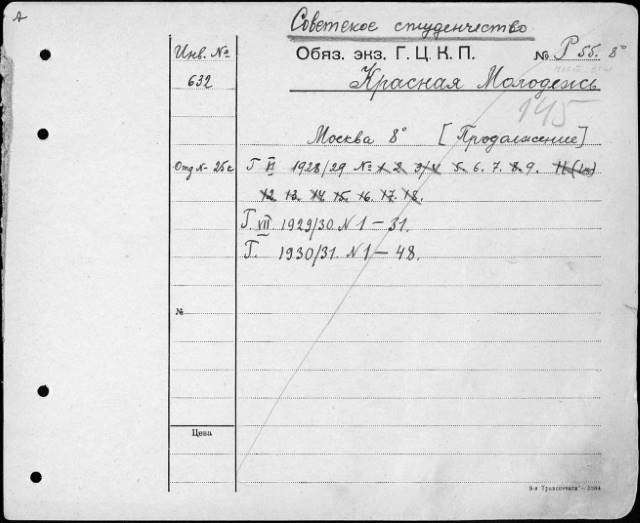 А
Советское студенчество
Инв. №
Обяз. экз. Г. Ц. К. П.
№ Р 55. 8°
632
Красная Молодежь
145
Москва 8° [Продолжение]
Отд N- 25с Г VI 1928/29 № 1 2 3/4 5. 6. 7. 8. 9. 11
12 13. 14 15. 16. 17. 18.
Г. VII. 1929/30. N 1 – 31.
Г. 1930/31. N 1 – 48.
№
Цена